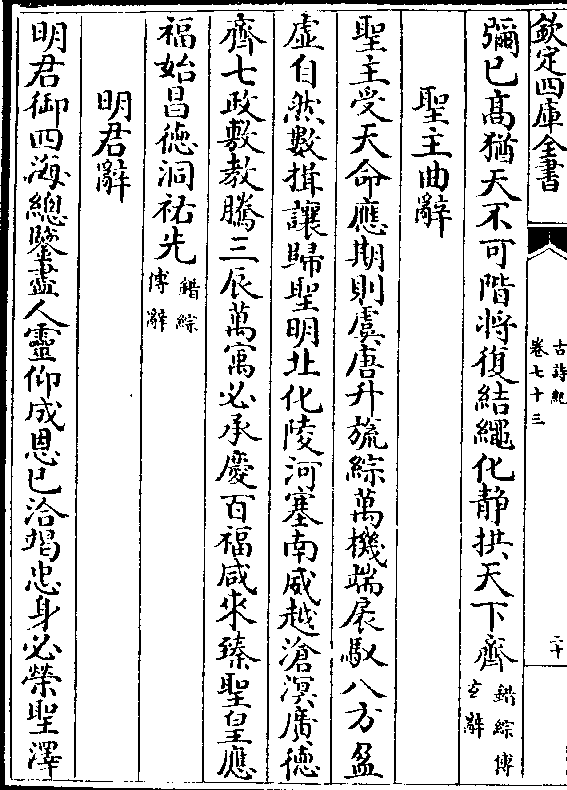 欽定四庫全書
古詩紀
卷七十三
二十
彌已高猶天不可階將復結繩化静拱天下齊
錯綜傅
玄辭
聖主曲辭
聖主受天命應期則虞唐升旒綜萬機端扆馭八方盈
虚自然數揖讓歸聖明北化陵河塞南威越滄溟廣徳
齊七政敷教騰三辰萬㝢必承慶百福咸來臻聖皇應
福始昌徳洞祐先
錯綜
傅辭
明君辭
明君御四海總鑒盡人靈仰成恩已洽竭忠身必榮聖澤